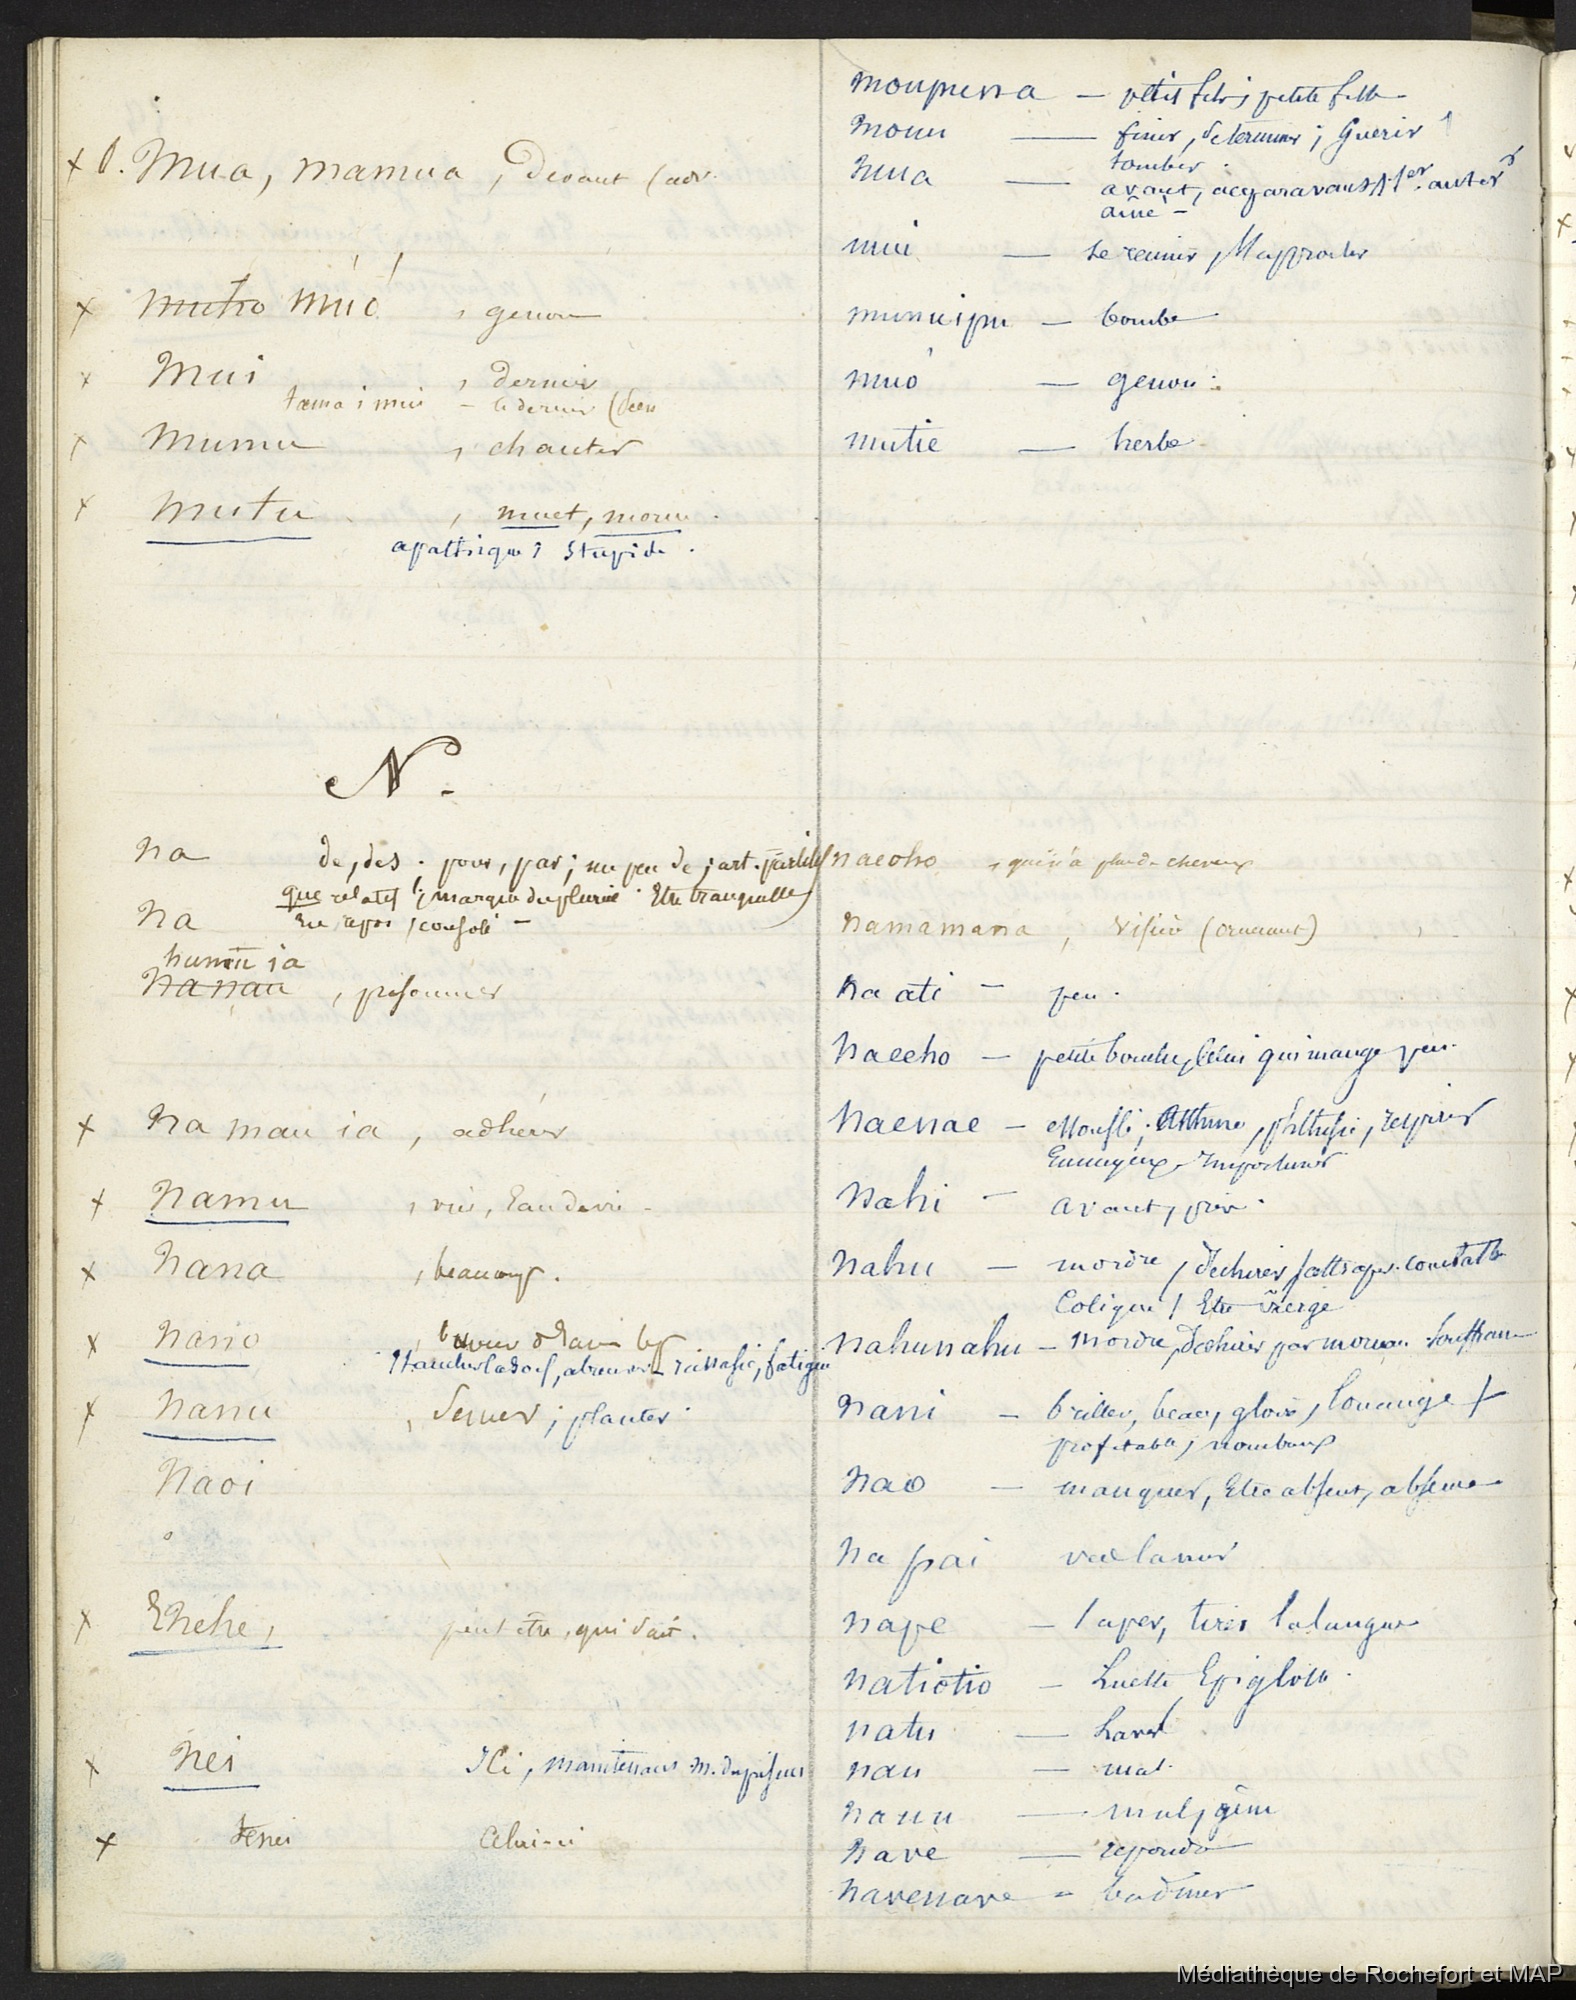 × O. Mua, mamua, devant (adv.
× mutro múó, genou
× Mui, dernier
taena i mui – le dernier (
× Mumu, chanter
× mutu, muet, morue.
apathique; stupide.
N.
na de, des; pour, par; un peu de; art. partitif
que relatif; marque du pluriel. Etre tranquille
na En repos, consolé –
humu ia
nanau, prisonnier
× Na mau ia, adhérer
× Namu, vin, Eau de vie.
× Nana, beaucoup.
× Nano, buveur
Etancher la soif, abreuver – rassasié, fatigué
× Nanu, semer; planter.
Naoi
× Ehehe, peut être, qui sait.
× Nei Ici, maintenant m. du présent
× tenei Celui-ci
moupuna – petit fils; petite fille
mouu — finir, déterminer; Guérir
tomber.
mua — avant, auparavant; 1er.
ainé –
mui — se réunir, s'approcher
munuipu – bombe
muó — genou.
mutie — herbe
naeoho, qui n'a plus de cheveux
namamana, visière (ornement)
Na ati – peu.
Naeeho – petite bouche, celui qui mange peu.
Naenae – essoufflé; Asthme, phthisie, respirer
Ennuyeux, Importuner
Nahi – avant, près.
Nahu – mordre, déchirer,
Colique; Etre vierge
Nahunahu – mordre, déchirer par morceau. Souffrance
Nani – briller, beau, gloire, louange +
profitable; nombreux
Nao – manquer, Etre absent, absence
Na pai
nape – laper, tirer la langue
natiotio – Luette Epiglotte.
natu — Laver
nau — mal.
nauu — mal, gêne
nave — répondre
navenave – badiner
Médiathèque de Rochefort et MAP